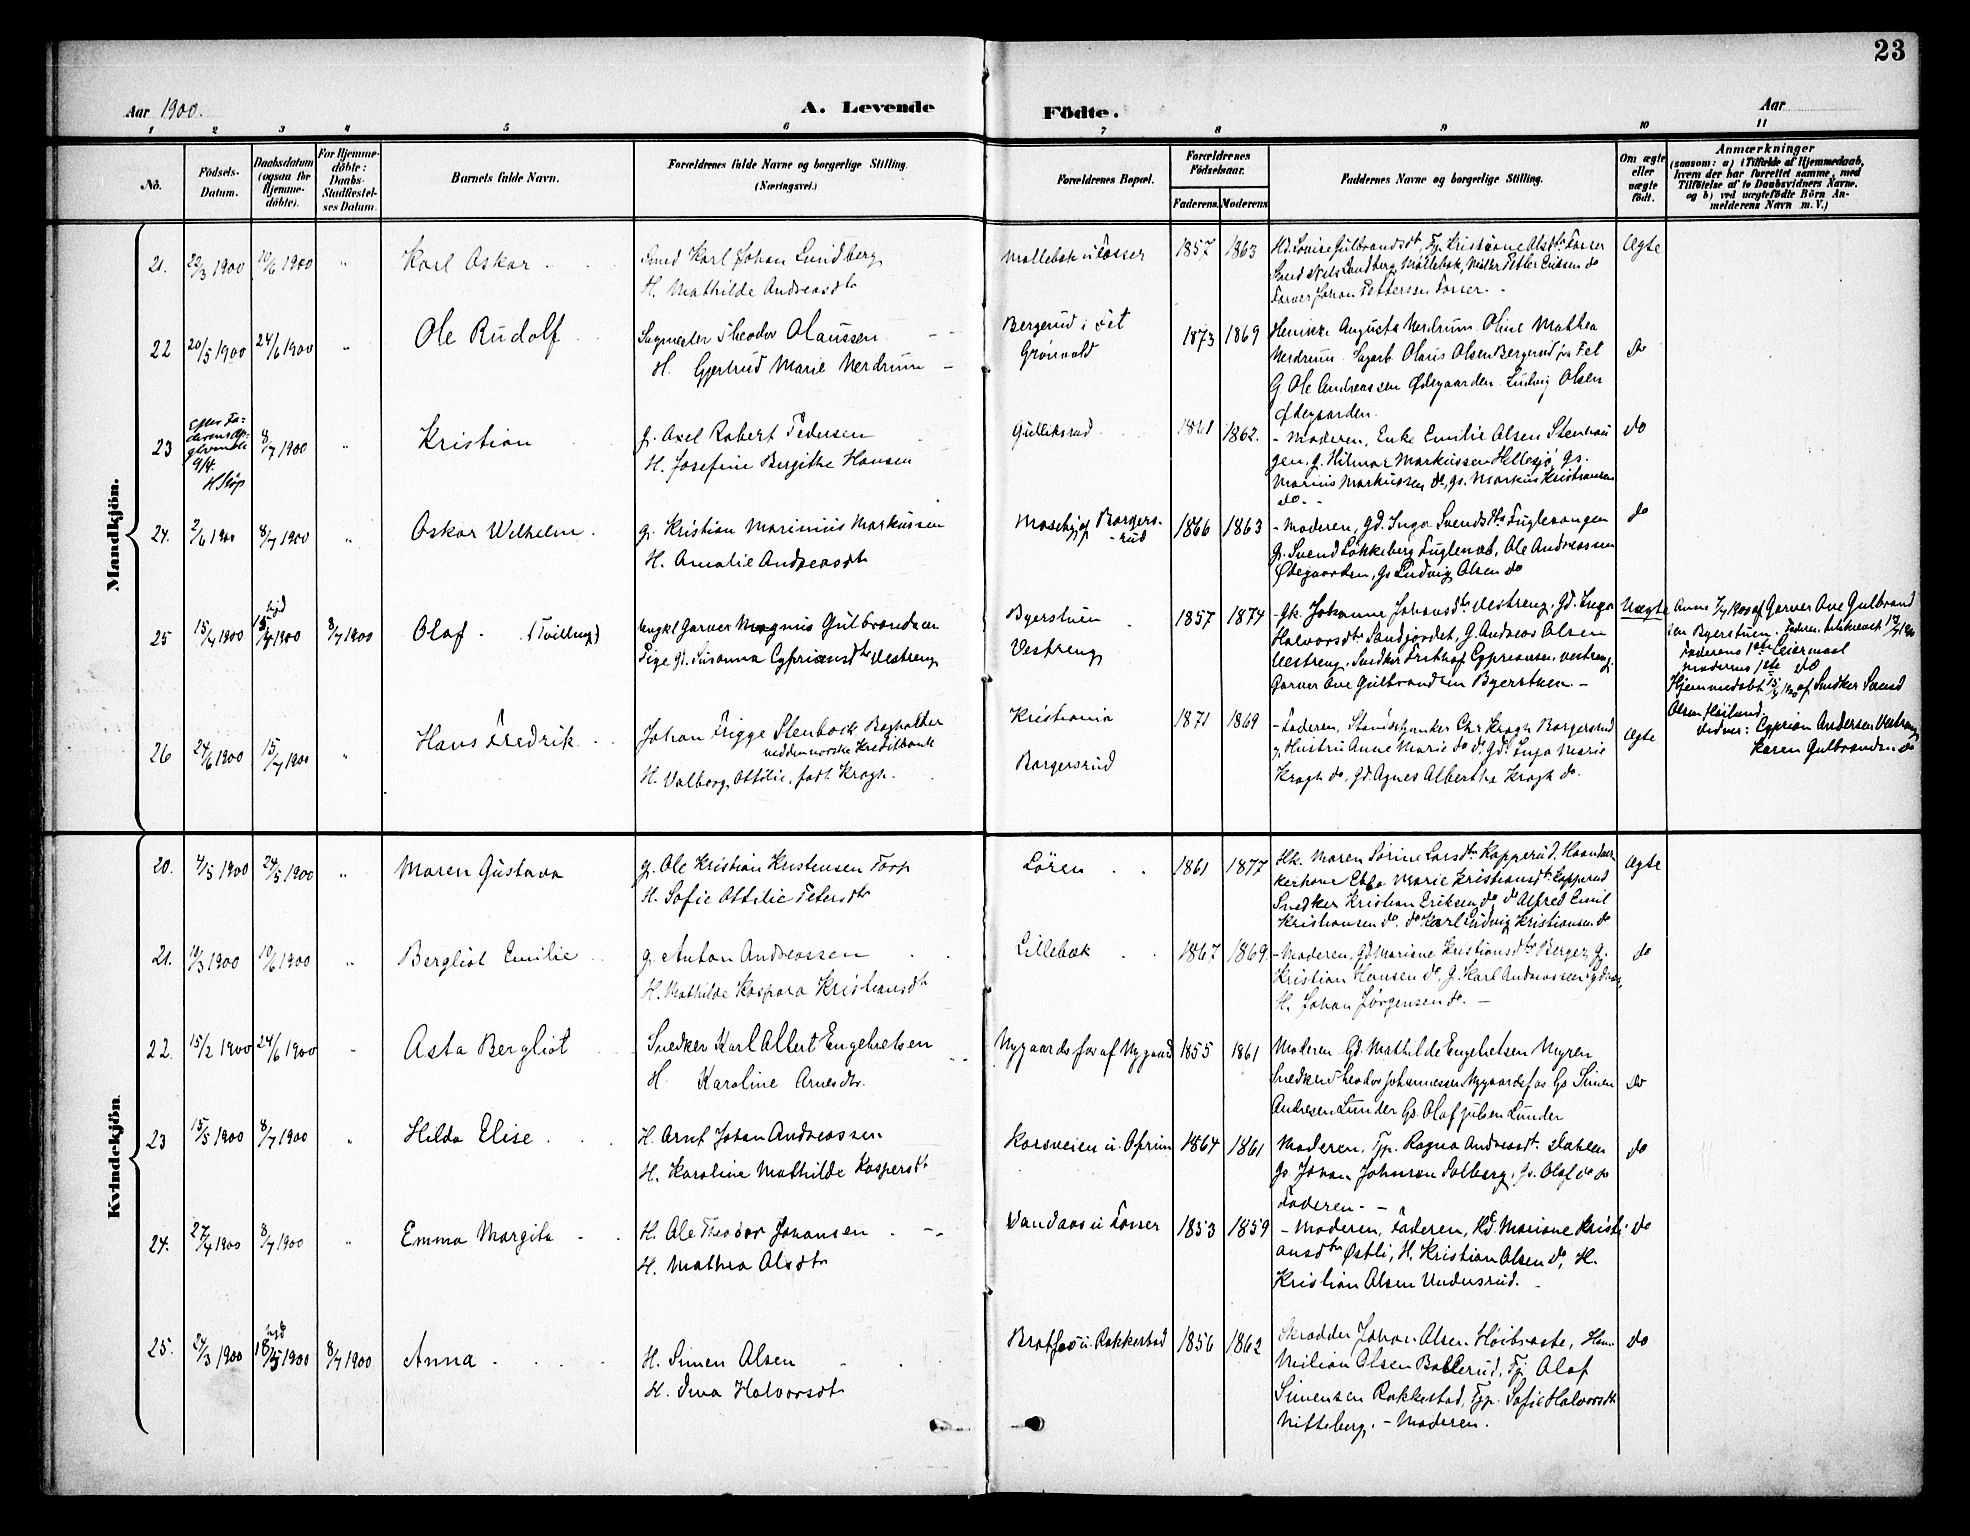 23
Aar 1900.
A. Levende
Födte.
Aar
1 2 3 4 5 6 7 8 9 10 11
No.
Födsels-Datum.
Daabsdatum (ogsaa for Hjemme-döbte).
For Hjemme-döbte: Daabs-Stadfæstelses Datum.
Barnets fulde Navn.
Forældrenes fulde Navne og borgerlige Stilling. (Næringsvei.)
Forældrenes Bopæl.
Forældrenes Födselsaar.
Faderens. Moderens.
Faddernes Navne og borgerlige Stilling.
Om ægte eller uægte födt.
Anmærkninger
(saasom: a) i Tilfælde af Hjemmedaab, hvem der har forrettet samme, med Tilföielse af to Daabsvidners Navne, og b) ved uægtefödte Börn Anmelderens Navn m. V.)
Mandkjön.
21. 22/3 1900 10/6 1900 " Karl Oskar
Smed Karl Johan Lundberg
H. Mathilde Andreasdtr
Møllebæk u Fosser 1857 1863
Ægte
22 20/5 1900 24/6 1900 " Ole Rudolf
Sagmester Theodor Olaussen
H. Gjertrud Marie Nerdrum
Bergerud i Fet
Grønvold
1873 1869
Henrikke Augusta Nerdrum. Oline Mathea
Nerdrum. Sagarb. Olaus Olsen Bergerud fra Fet
G Ole Andreassen Ødegaarden. Ludvig Olsen
Ødegaarden.
do
23 8/7 1900 " Kristian
g. Axel Robert Pedersen
H. Josefine Bergithe Hansen
Gulliksrud 1862.
- Moderen, Enke Emilie Olsen Stenhau
gen, g. Hilmar Markussen Hellesjø, gs.
Marius Markussen do, gs. Markus Kristiansen
do
do
24. 2/6 1900 8/7 1900 " Oskar Wilhelm
g. Kristian Marinius Markussen
H. Amalie Andreasdtr
Borgersrud
1866 1863
- Moderen, Gd. Inga Svendsdtr Fuglevangen
g. Svend Løkkeberg, Ole Andreassen
Ødegaarden, Gs Ludvig Olsen do
do
25 15/4 1900 hjd 1900 8/7 1900 Olaf. (Tvilling)
Ungkl Garver Magnus Gulbrandsen
Pige gd. Susanna Cypriansdtr Vestreng
Byerstuen
Vestreng
1857 1874
- Gk. Johanne Johansdtr Vestreng, Gd. Inga
Halvorsdtr Sandjordet, G. Andreas Olsen
Vestreng, Snedker Frithof Cypriansen, Vestreng,
Garver Ove Gulbrandsen Byerstuen. -
Uægte
Anm 7/7 1900 af Garver Ove Gulbrand
sen Byerstuen.
Faderens 1ste Leiermaal
Moderens 1ste do
Hjemmedøbt af Snedker Svend
Olsen
Vidner: Cyprian Andersen Vestreng
Karen Gulbrandsen do
26 24/6 1900 15/7 1900 " Hans Fredrik
Johan Frigge Stenbock Bogholder
ved den norske Kreditbank
H. Valborg Ottilie, født Krogh.
Kristiania
Borgersrud
1871 1869
- Faderen, Chr Krogh Borgersrud
g Hustru Anne Marie do do, Gd. Inga Marie
Krogh do, Gd. Agnes Alberthe Krogh do.
Ægte
Kvindekjön.
20. 4/5 1900 24/5 1900 " Maren Gustava
g. Ole Kristian Kristensen Torp
H. Sofie Ottilie Petersdtr
Løren 1861 1877
Hk. Maren Sørine Larsdtr Kopperud. Haandvær
kerkone Ebba Marie Kristiansdtr Kopperud
Snedker Kristian Eriksen do, do Alfred Emil
Kristiansen do. do Karl Ludvig Kristiansen do
Ægte
21. 10/3 1900 10/6 1900 " Bergliot Emilie
g. Anton Andreassen
H. Mathilde Kaspara Kristiansdtr
Lillebæk 1867 1869.
- Moderen, Gd. Mariane Kristiansdtr Berger, g.
Kristian Hansen do, g. Karl Andreassen
H. Johan Jørgensen do. -
do
22. 15/2 1900 24/6 1900 Asta Bergliot
Snedker Karl Albert Engebretsen
H. Karoline Arnesdtr.
Nygaardsfos af Nygaard 1855 1861
Moderen. Gd. Mathilde Engebretsen Myren
Snedker Theodor Johannessen Nygaardsfos Gs Simen
Andresen Lunder Gs. Olaf Julsen Lunder
do
23 15/5 1900 8/7 1900 " Hilda Elise
H. Arnt Johan Andreassen
H. Karoline Mathilde Kaspersdtr
Korsveien u. Ofrim 1864 1861
Moderen, Tp. Ragna Andreasdtr. Dahlen
Gs. Johan Johnsen Solberg, Gs. Olaf do do
Faderen. -
do
24. 27/4 1900 8/7 1900 " Emma Margita
H. Ole Theodor Johansen
H. Mathea Olsdtr
Vandaas u Fosser 1853 1859
- Moderen, Faderen, Hd. Mariane Kristi-
ansdtr Østli, H. Kristian Olsen do, H.
Kristian Olsen Undersrud.
do
25. 24/3 1900 hjd 1900 8/7 1900 Anna
H. Simen Olsen
H. Ina Halvorsdtr
Bratfos u. Rakkestad 1856 1862
Skrædder Johan Olsen,
Milian Olsen Bøllerud, Tj. Olaf
Simensen Rakkestad, Tp. Sofie Halvorsdtr
Nitteberg. - Moderen.
do